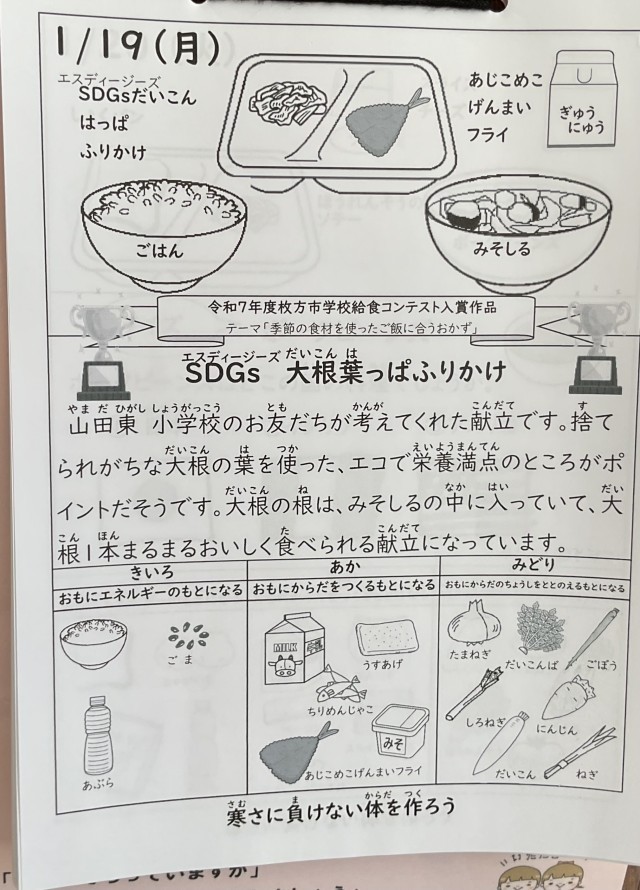 1/19(月)
エスディージーズ
SDGsだいこん
はっぱ
ふりかけ
あじこめこ
げんまい
フライ
ぎゅう
にゅう
ごはん
みそしる
令和7年度枚方市学校給食コンテスト入賞作品
テーマ「季節の食材を使ったご飯に合うおかず」
エスディージーズ だいこん は
SDGs 大根葉っぱふりかけ
やま だ ひがし しょうがっこう とも かんが こんだて す
山田東 小学校のお友だちが考えてくれた献立です。捨て
だいこん は つか えいようまんてん
られがちな大根の葉を使った、エコで栄養満点のところがポ
だいこん ね なか はい だい
イントだそうです。大根の根は、みそしるの中に入っていて、大
こん ぽん た こんだて
根1本まるまるおいしく食べられる献立になっています。
きいろ
あか
みどり
おもにエネルギーのもとになる
おもにからだをつくるもとになる
おもにからだのちょうしをととのえるもとになる
ごま
あぶら
MILK
うすあげ
ちりめんじゃこ
みそ
あじこめこげんまいフライ
たまねぎ
だいこんば
ごぼう
しろねぎ
にんじん
だいこん
ねぎ
さむ ま からだ つく
寒さに負けない体を作ろう